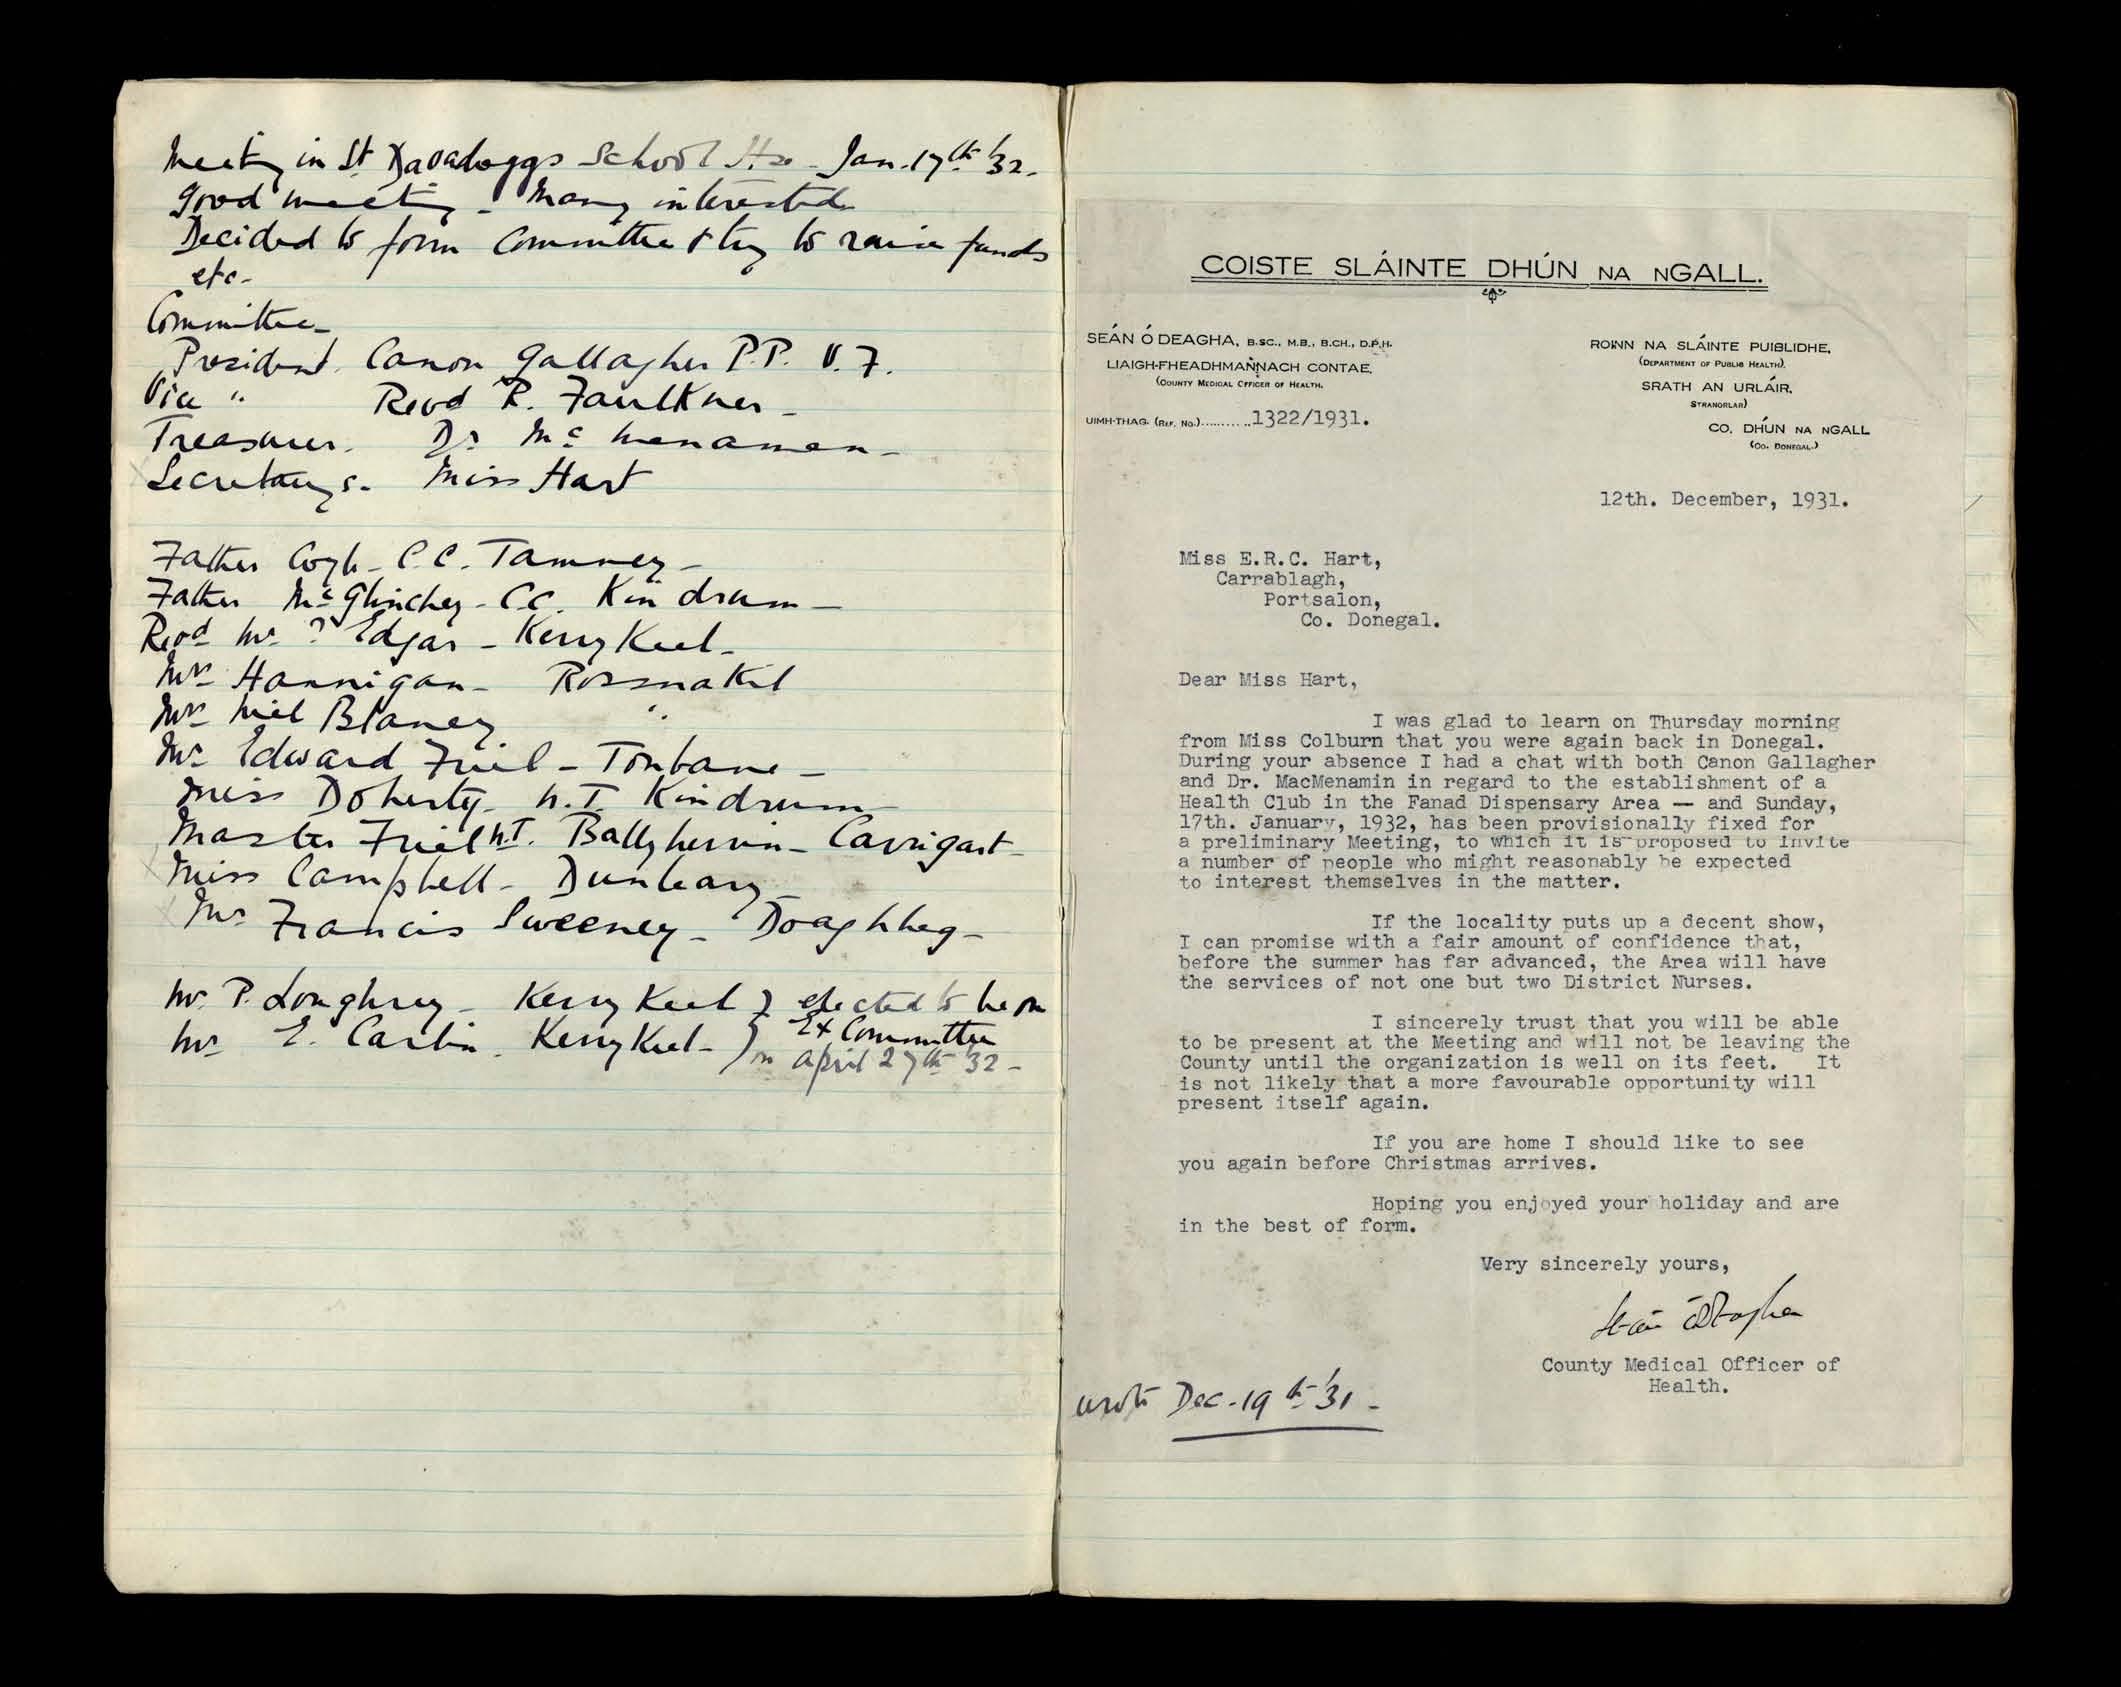 Meeting in St Davadoggs School Hse - Jan. 17th '32.
Good meeting - Many interested
Decided to form Committee & try to raise funds
etc -
Committee -
President. Canon Gallagher P.P. V.F.
Vice " Revd R. Faulkner -
Treasurer. Dr Mc Menamen -
Secretary s. Miss Hart
Father Coyle - C.C. Tamney -
Father McGlinchey - C.C. Kindrum -
Revd Mr ? Edgar - Kerry Keel -
Mr Hannigan - Rossnakil
Mr Niel Blaney "
Mr Edward Friel - Tonbane -
Miss Doherty - N.T. Kindrum -
Master Friel N.T. Ballyhernin - Carrigart -
Miss Campbell - Dunleary -
Mr Francis Sweeney - Doaghbeg -
Mr P. Loughrey - Kerry Keel } elected to be on
Mr E. Carlin. Kerry Keel - } Ex Committee
on April 27th '32 -
COISTE SLÁINTE DHÚN NA NGALL.
SEÁN Ó DEAGHA, B.SC., M.B., B.CH., D.P.H.
LIAIGH-FHEADHMANNACH CONTAE.
(COUNTY MEDICAL OFFICER OF HEALTH.
UIMH-THAG. (REF. NO.)..........1322/1931.
ROINN NA SLÁINTE PUIBLIDHE,
(DEPARTMENT OF PUBLIC HEALTH).
SRATH AN URLÁIR,
STRANORLAR)
CO. DHÚN NA NGALL
(CO. DONEGAL.)
12th. December, 1931.
Miss E.R.C. Hart,
Carrablagh,
Portsalon,
Co. Donegal.
Dear Miss Hart,
I was glad to learn on Thursday morning
from Miss Colburn that you were again back in Donegal.
During your absence I had a chat with both Canon Gallagher
and Dr. MacMenamin in regard to the establishment of a
Health Club in the Fanad Dispensary Area — and Sunday,
17th. January, 1932, has been provisionally fixed for
a preliminary Meeting, to which it is proposed to invite
a number of people who might reasonably be expected
to interest themselves in the matter.
If the locality puts up a decent show,
I can promise with a fair amount of confidence that,
before the summer has far advanced, the Area will have
the services of not one but two District Nurses.
I sincerely trust that you will be able
to be present at the Meeting and will not be leaving the
County until the organization is well on its feet. It
is not likely that a more favourable opportunity will
present itself again.
If you are home I should like to see
you again before Christmas arrives.
Hoping you enjoyed your holiday and are
in the best of form.
Very sincerely yours,
Seán Ó Deagha
County Medical Officer of
Health.
wrote Dec. 19th '31 -